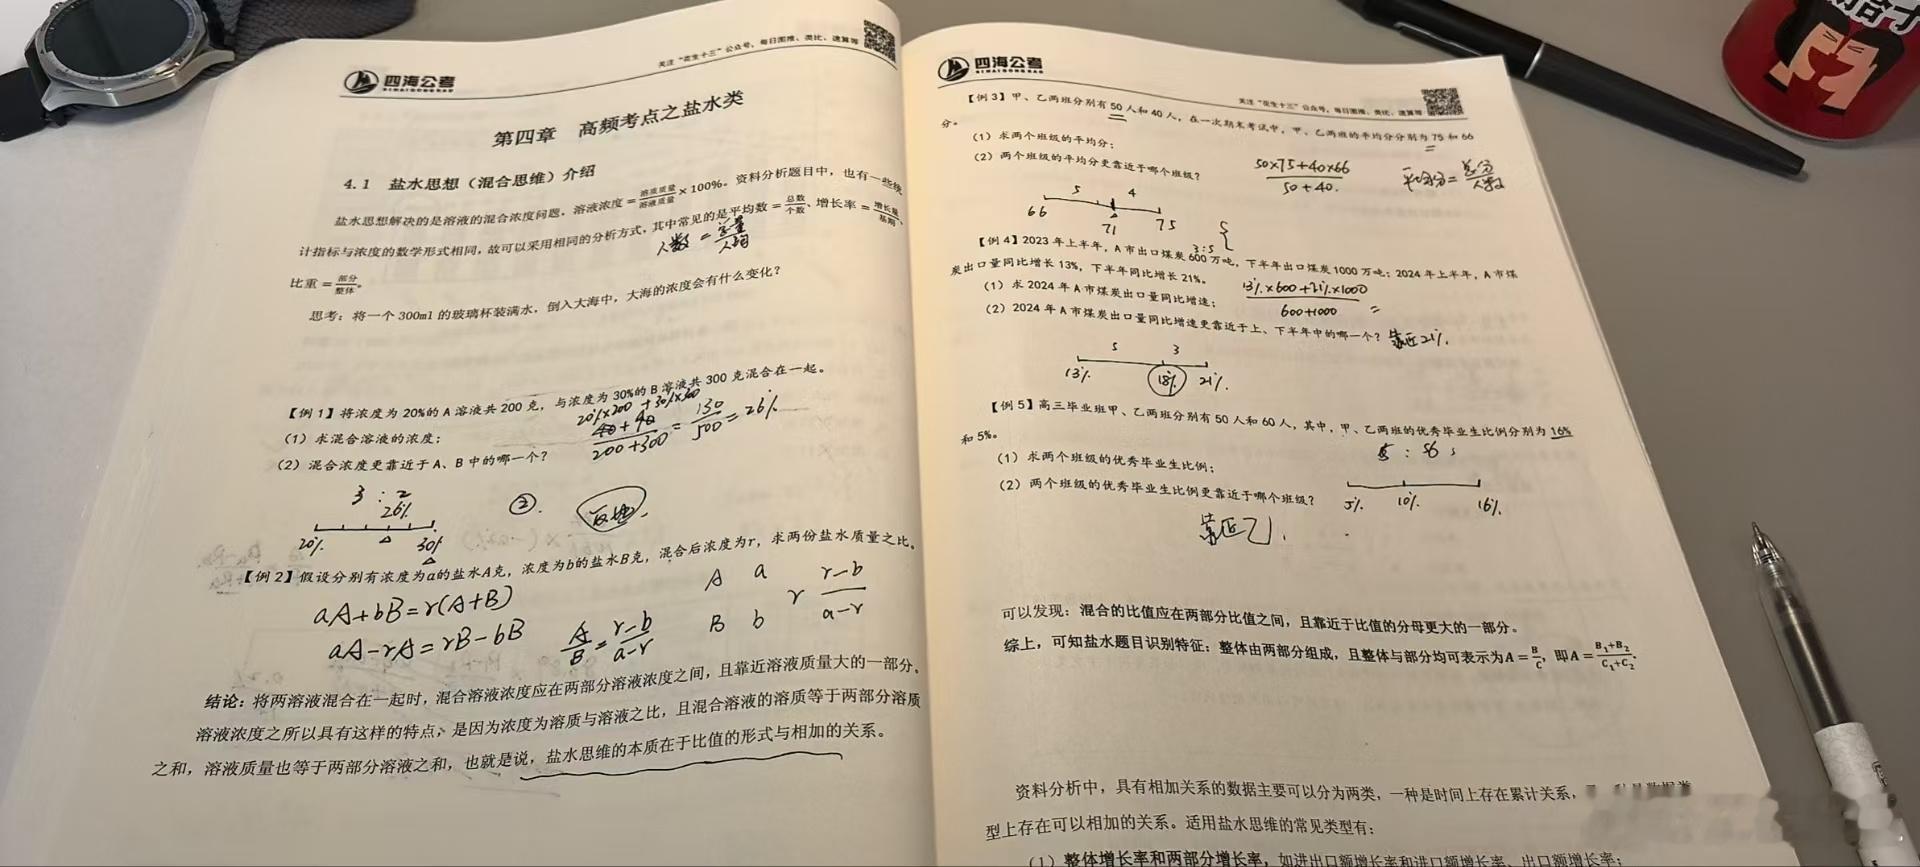 四海公考
SIHAIGONGKAO
关注“花生十三”公众号，每日图推、类比、速算等
第四章 高频考点之盐水类
4.1 盐水思想（混合思维）介绍
盐水思想解决的是溶液的混合浓度问题，溶液浓度=溶质质量/溶液质量×100%。资料分析题目中，也有一些统
计指标与浓度的数学形式相同，故可以采用相同的分析方式，其中常见的是平均数=总数/个数、增长率=增长量/基期、
人数=总量/人均
比重=部分/整体。
思考：将一个300ml的玻璃杯装满水，倒入大海中，大海的浓度会有什么变化？
【例1】将浓度为20%的A溶液共200克，与浓度为30%的B溶液共300克混合在一起。
（1）求混合溶液的浓度；
200+300 = 130/500 = 26%
（2）混合浓度更靠近于A、B中的哪一个？
3 : 2
26%
20% 30%
②.
【例2】假设分别有浓度为a的盐水A克，浓度为b的盐水B克，混合后浓度为r，求两份盐水质量之比。
aA+bB=r(A+B)
aA-rA=rB-bB
A/B=r-b/a-r
A a r r-b
B b a-r
结论：将两溶液混合在一起时，混合溶液浓度应在两部分溶液浓度之间，且靠近溶液质量大的一部分。
溶液浓度之所以具有这样的特点，是因为浓度为溶质与溶液之比，且混合溶液的溶质等于两部分溶质
之和，溶液质量也等于两部分溶液之和，也就是说，盐水思维的本质在于比值的形式与相加的关系。
四海公考
SIHAIGONGKAO
关注“花生十三”公众号，每日图推、类比、速算等
【例3】甲、乙两班分别有50人和40人，在一次期末考试中，甲、乙两班的平均分分别为75和66
分。
（1）求两个班级的平均分；
（2）两个班级的平均分更靠近于哪个班级？
50×75+40×66
50+40.
平均分=总分/人数
5 4
66 71 75
3:5
【例4】2023年上半年，A市出口煤炭600万吨，下半年出口煤炭1000万吨；2024年上半年，A市煤
炭出口量同比增长13%，下半年同比增长21%。
（1）求2024年A市煤炭出口量同比增速；
13%×600+21%×1000
600+1000 =
（2）2024年A市煤炭出口量同比增速更靠近于上、下半年中的哪一个？
靠近21%.
5 3
13% 18% 21%.
【例5】高三毕业班甲、乙两班分别有50人和60人，其中，甲、乙两班的优秀毕业生比例分别为16%
和5%。
（1）求两个班级的优秀毕业生比例；
（2）两个班级的优秀毕业生比例更靠近于哪个班级？
5% 10% 16%
靠近乙.
可以发现：混合的比值应在两部分比值之间，且靠近于比值的分母更大的一部分。
综上，可知盐水题目识别特征：整体由两部分组成，且整体与部分均可表示为A=B/C，即A=B₁+B₂/C₁+C₂.
资料分析中，具有相加关系的数据主要可以分为两类，一种是时间上存在累计关系，
型上存在可以相加的关系。适用盐水思维的常见类型有：
（1）整体增长率和两部分增长率，如进出口额增长率和进口额增长率、出口额增长率；